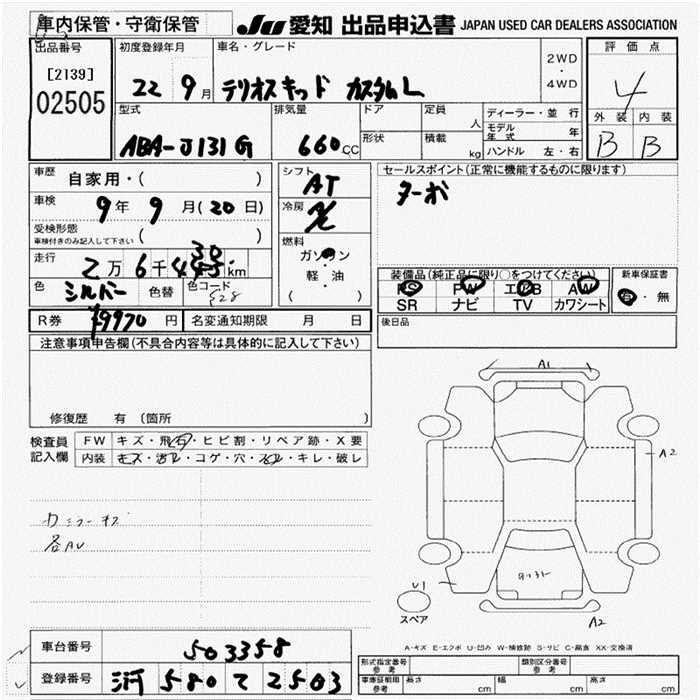 車内保管・守衛保管
JU 愛知 出品申込書 JAPAN USED CAR DEALERS ASSOCIATION
出品番号 初度登録年月 車名・グレード 評価点
[2139] 22 9月 テリオスキッド カスタムL 2WD・4WD 4
02505
型式 排気量 ドア 定員 人 ディーラー・並行 外装 内装
モデル年式 年
ABA-J131G 660CC 形状 積載 kg ハンドル 左・右 B B
車歴 自家用・( ) シフト AT セールスポイント(正常に機能するものに限ります)
車検 9年9月(20日) 冷房 ターボ
受検形態
車検付きのみ記入して下さい ( ) 燃料
走行 2万6千 km ガソリン
軽・油
( )
装備品(純正品に限り○をつけてください) 新車保証書
色 シルバー 色替 色コード S28 PS PW エアB AW 有・無
SR ナビ TV カワシート
R券 ¥9970円 名変通知期限 月 日 後日品
注意事項申告欄(不具合内容等は具体的に記入して下さい)
修復歴 有 (箇所
検査員記入欄 FW キズ・飛石・ヒビ割・リペア跡・X要
内装 キズ・汚レ・コゲ・穴・スレ・キレ・破レ
A1
A2
カミラーキズ
各AU
U1
スペア
A2
A-キズ E-エクボ U-凹み W-補修跡 S-サビ C-腐食 XX-交換済
車台番号 503358
登録番号 580 て 2503
型式指定番号 参考 類別区分番号 参考
車庫証明用 参考 長さ cm 幅 cm 高さ cm